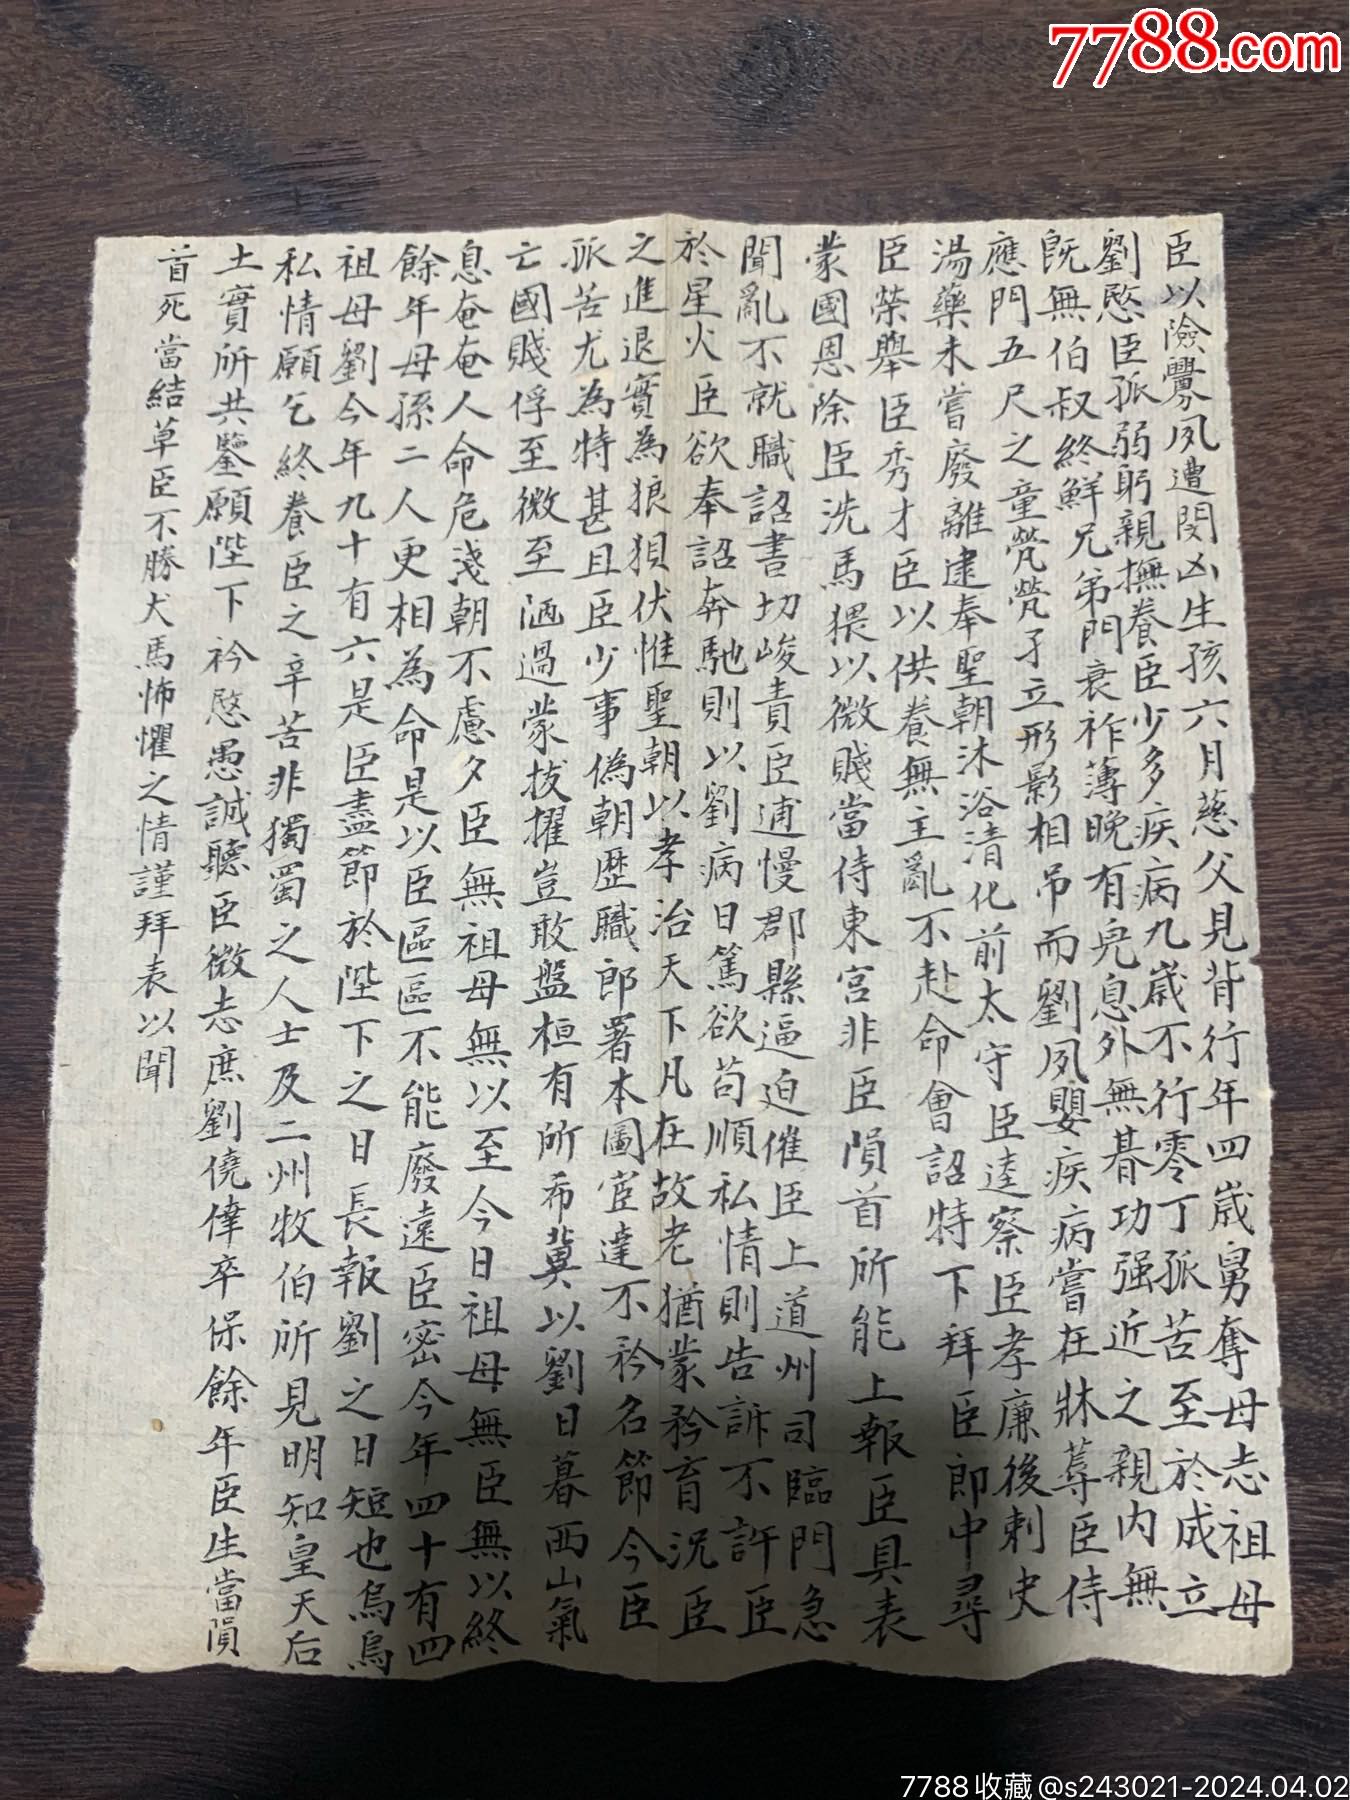 7788.com
臣以險釁夙遭閔凶生孩六月慈父見背行年四歲舅奪母志祖母
劉愍臣孤弱躬親撫養臣少多疾病九歲不行零丁孤苦至於成立
既無伯叔終鮮兄弟門衰祚薄晚有兒息外無朞功强近之親內無
應門五尺之童煢煢孑立形影相吊而劉夙嬰疾病嘗在牀蓐臣侍
湯藥未嘗廢離逮奉聖朝沐浴清化前太守臣逵察臣孝廉後刺史
臣榮舉臣秀才臣以供養無主亂不赴命會詔特下拜臣郎中尋
蒙國恩除臣洗馬猥以微賤當侍東宮非臣隕首所能上報臣具表
聞亂不就職詔書切峻責臣逋慢郡縣逼迫催臣上道州司臨門急
於星火臣欲奉詔奔馳則以劉病日篤欲苟順私情則告訴不許臣
之進退實為狼狽伏惟聖朝以孝治天下凡在故老猶蒙矜育況臣
孤苦尤為特甚且臣少事偽朝歷職郎署本圖宦達不矜名節今臣
亡國賤俘至微至陋過蒙拔擢豈敢盤桓有所希冀以劉日暮西山氣
息奄奄人命危淺朝不慮夕臣無祖母無以至今日祖母無臣無以終
餘年母孫二人更相為命是以臣區區不能廢遠臣密今年四十有四
祖母劉今年九十有六是臣盡節於陛下之日長報劉之日短也烏鳥
私情願乞終養臣之辛苦非獨蜀之人士及二州牧伯所見明知皇天后
土實所共鑒願陛下矜愍愚誠聽臣微志庶劉僥倖卒保餘年臣生當隕
首死當結草臣不勝犬馬怖懼之情謹拜表以聞
7788收藏@s243021-2024.04.02